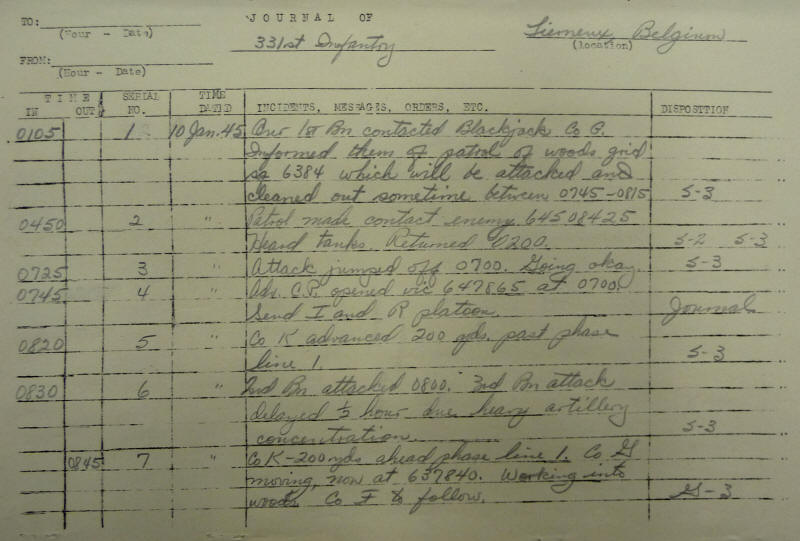 TO:
(Hour - Date)
JOURNAL OF
331st Infantry
Belgium
(location)
FROM:
(Hour - Date)
TIME
IN OUT
SERIAL NO.
TIME DATED
INCIDENTS, MESSAGES, ORDERS, ETC.
DISPOSITION
0105 1 10 Jan. 45 1st Bn contacted Blackjack Co G.
Informed them of patrol of woods grid
sq 6384 which will be attacked and
cleaned out sometime between 0745-0815 S-3
0450 2 " Patrol made contact enemy 64508425
Heard tanks. Returned 0200. S-2 S-3
0725 3 " Attack jumped off 0700. Going okay. S-3
0745 4 " Adv. C.P. opened vic 647865 at 0700.
Send I and R platoon. Journal
0820 5 " Co K advanced 200 yds. past phase
line 1. S-3
0830 6 " 2nd Bn attacked 0800. 3rd Bn attack
delayed ½ hour due heavy artillery
concentration. S-3
0845 7 " Co K-200 yds ahead phase line 1. Co G
moving, now at 637840. Working into
woods. Co F to follow. G-3